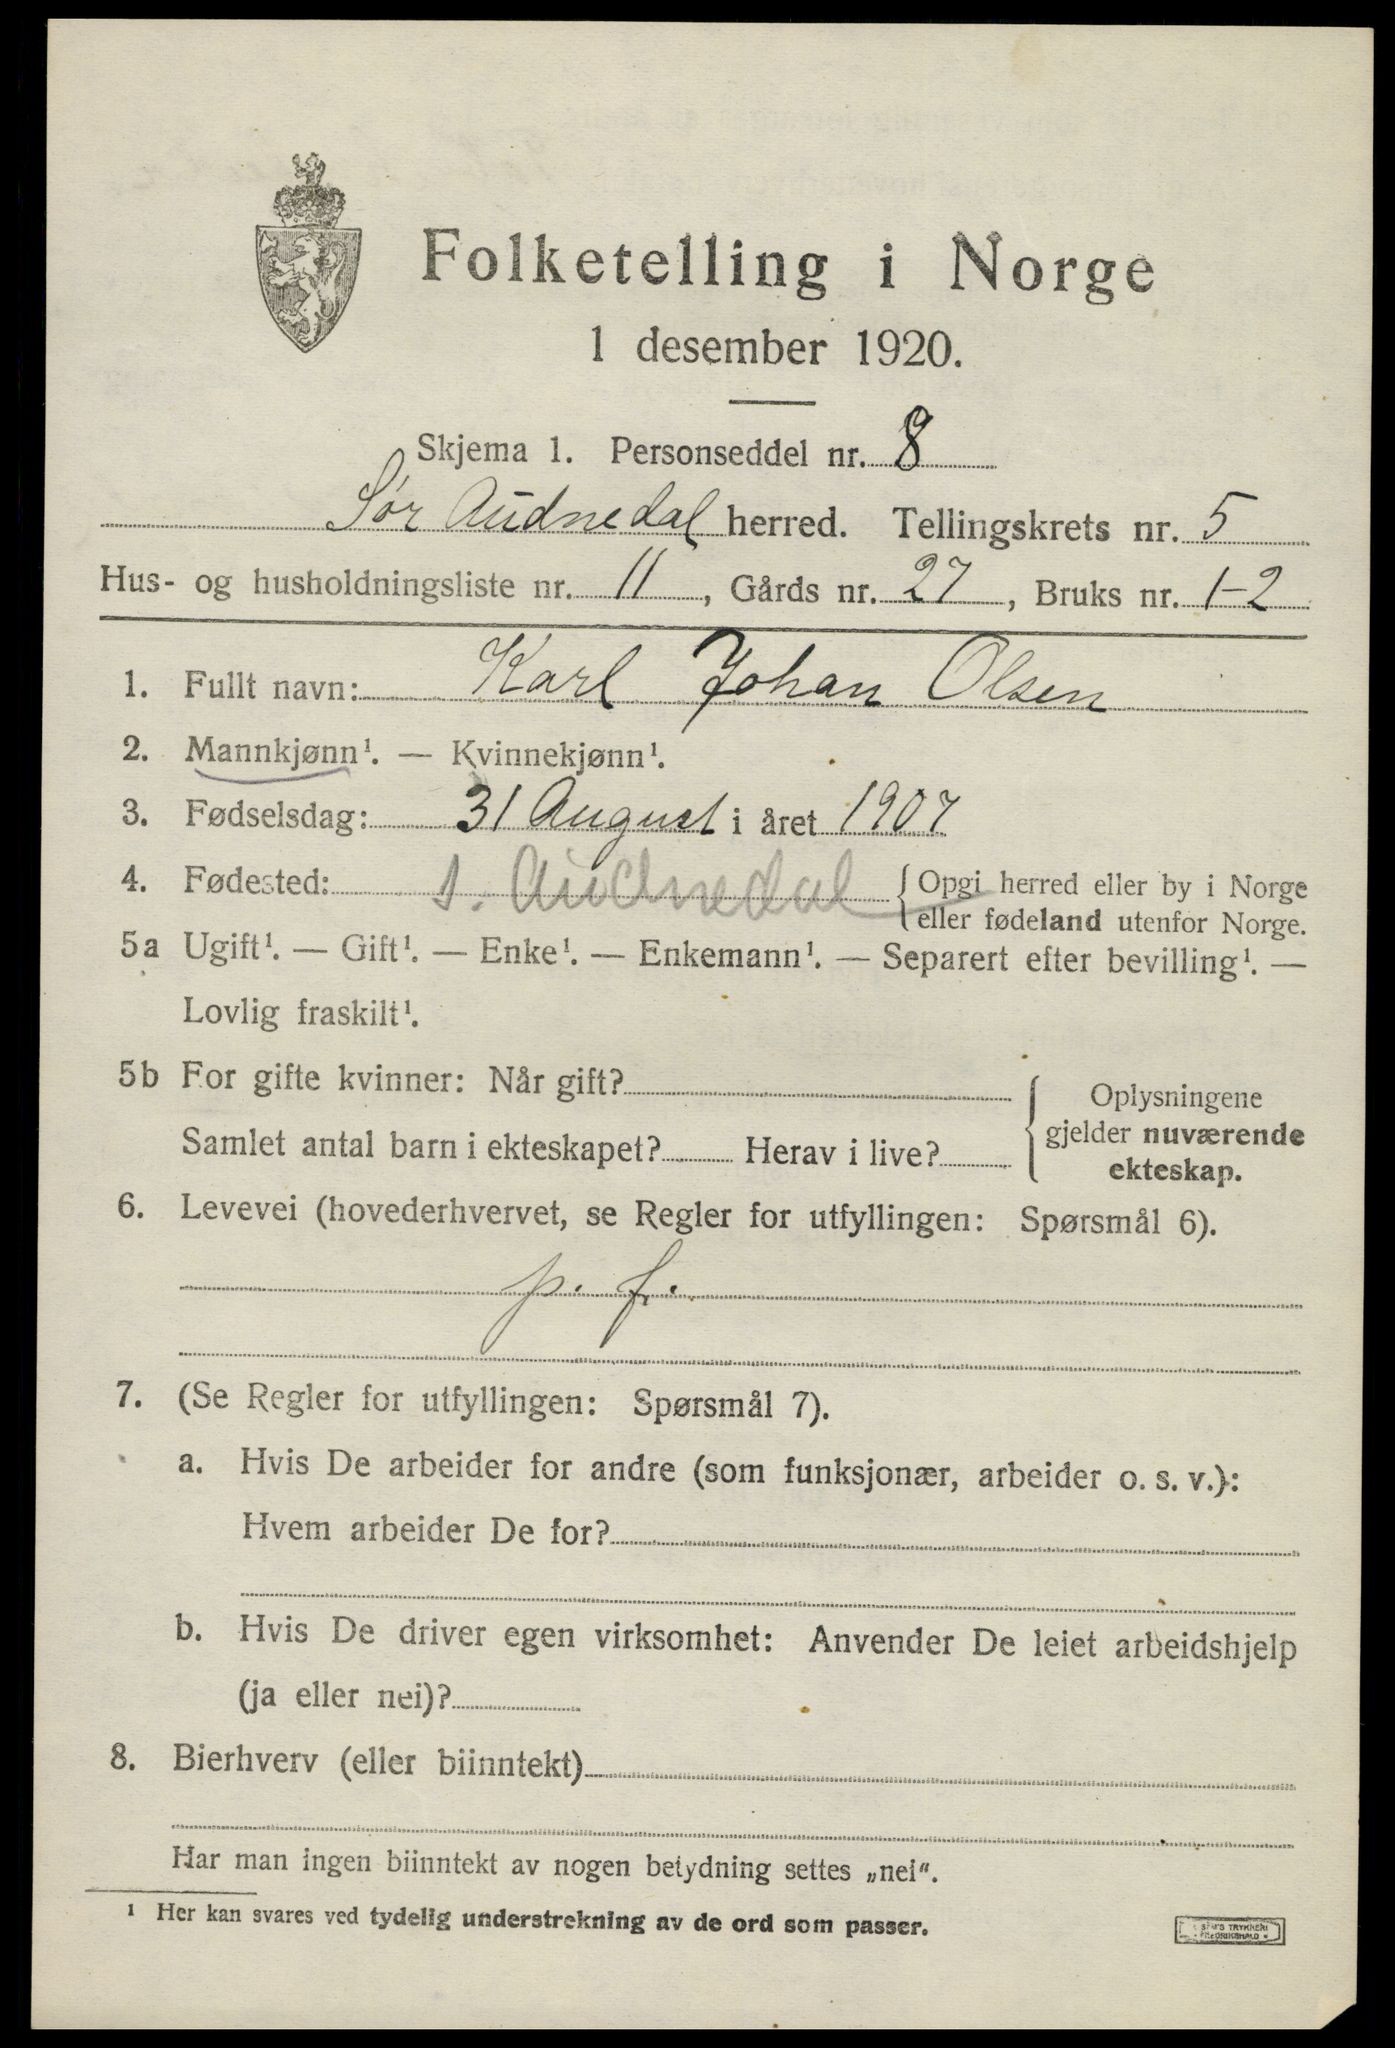 Folketelling i Norge
1 desember 1920.
Skjema 1. Personseddel nr. 8
Sør Audnedal herred. Tellingskrets nr. 5
Hus- og husholdningsliste nr. 11, Gårds nr. 27, Bruks nr. 1-2
1. Fullt navn: Karl Johan Olsen
2. Mannkjønn¹. — Kvinnekjønn¹.
3. Fødselsdag: 31 August i året 1907
4. Fødested: s. Audnedal { Opgi herred eller by i Norge
eller fødeland utenfor Norge.
5a Ugift¹. — Gift¹. — Enke¹. — Enkemann¹. — Separert efter bevilling¹. —
Lovlig fraskilt¹.
5b For gifte kvinner: Når gift?
Samlet antal barn i ekteskapet? Herav i live?
Oplysningene
gjelder nuværende
ekteskap.
6. Levevei (hovederhvervet, se Regler for utfyllingen: Spørsmål 6).
p. f.
7. (Se Regler for utfyllingen: Spørsmål 7).
a. Hvis De arbeider for andre (som funksjonær, arbeider o. s. v.):
Hvem arbeider De for?
b. Hvis De driver egen virksomhet: Anvender De leiet arbeidshjelp
(ja eller nei)?
8. Bierhverv (eller biinntekt)
Har man ingen biinntekt av nogen betydning settes „nei“.
¹ Her kan svares ved tydelig understrekning av de ord som passer.
TRYKKERI
FREDRIKSHALD